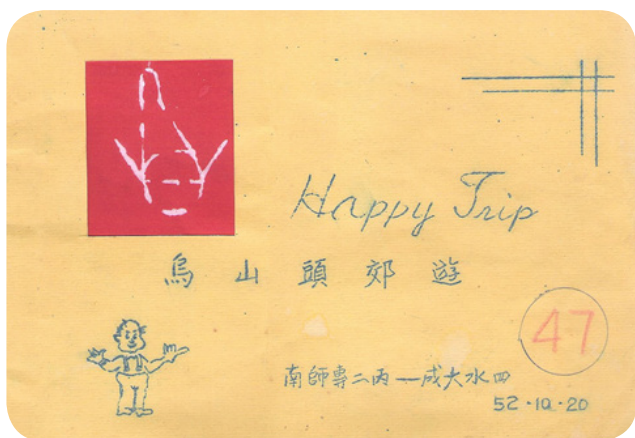 Happy Trip
烏山頭郊遊
47
南師專二丙—成大水四
52·10·20